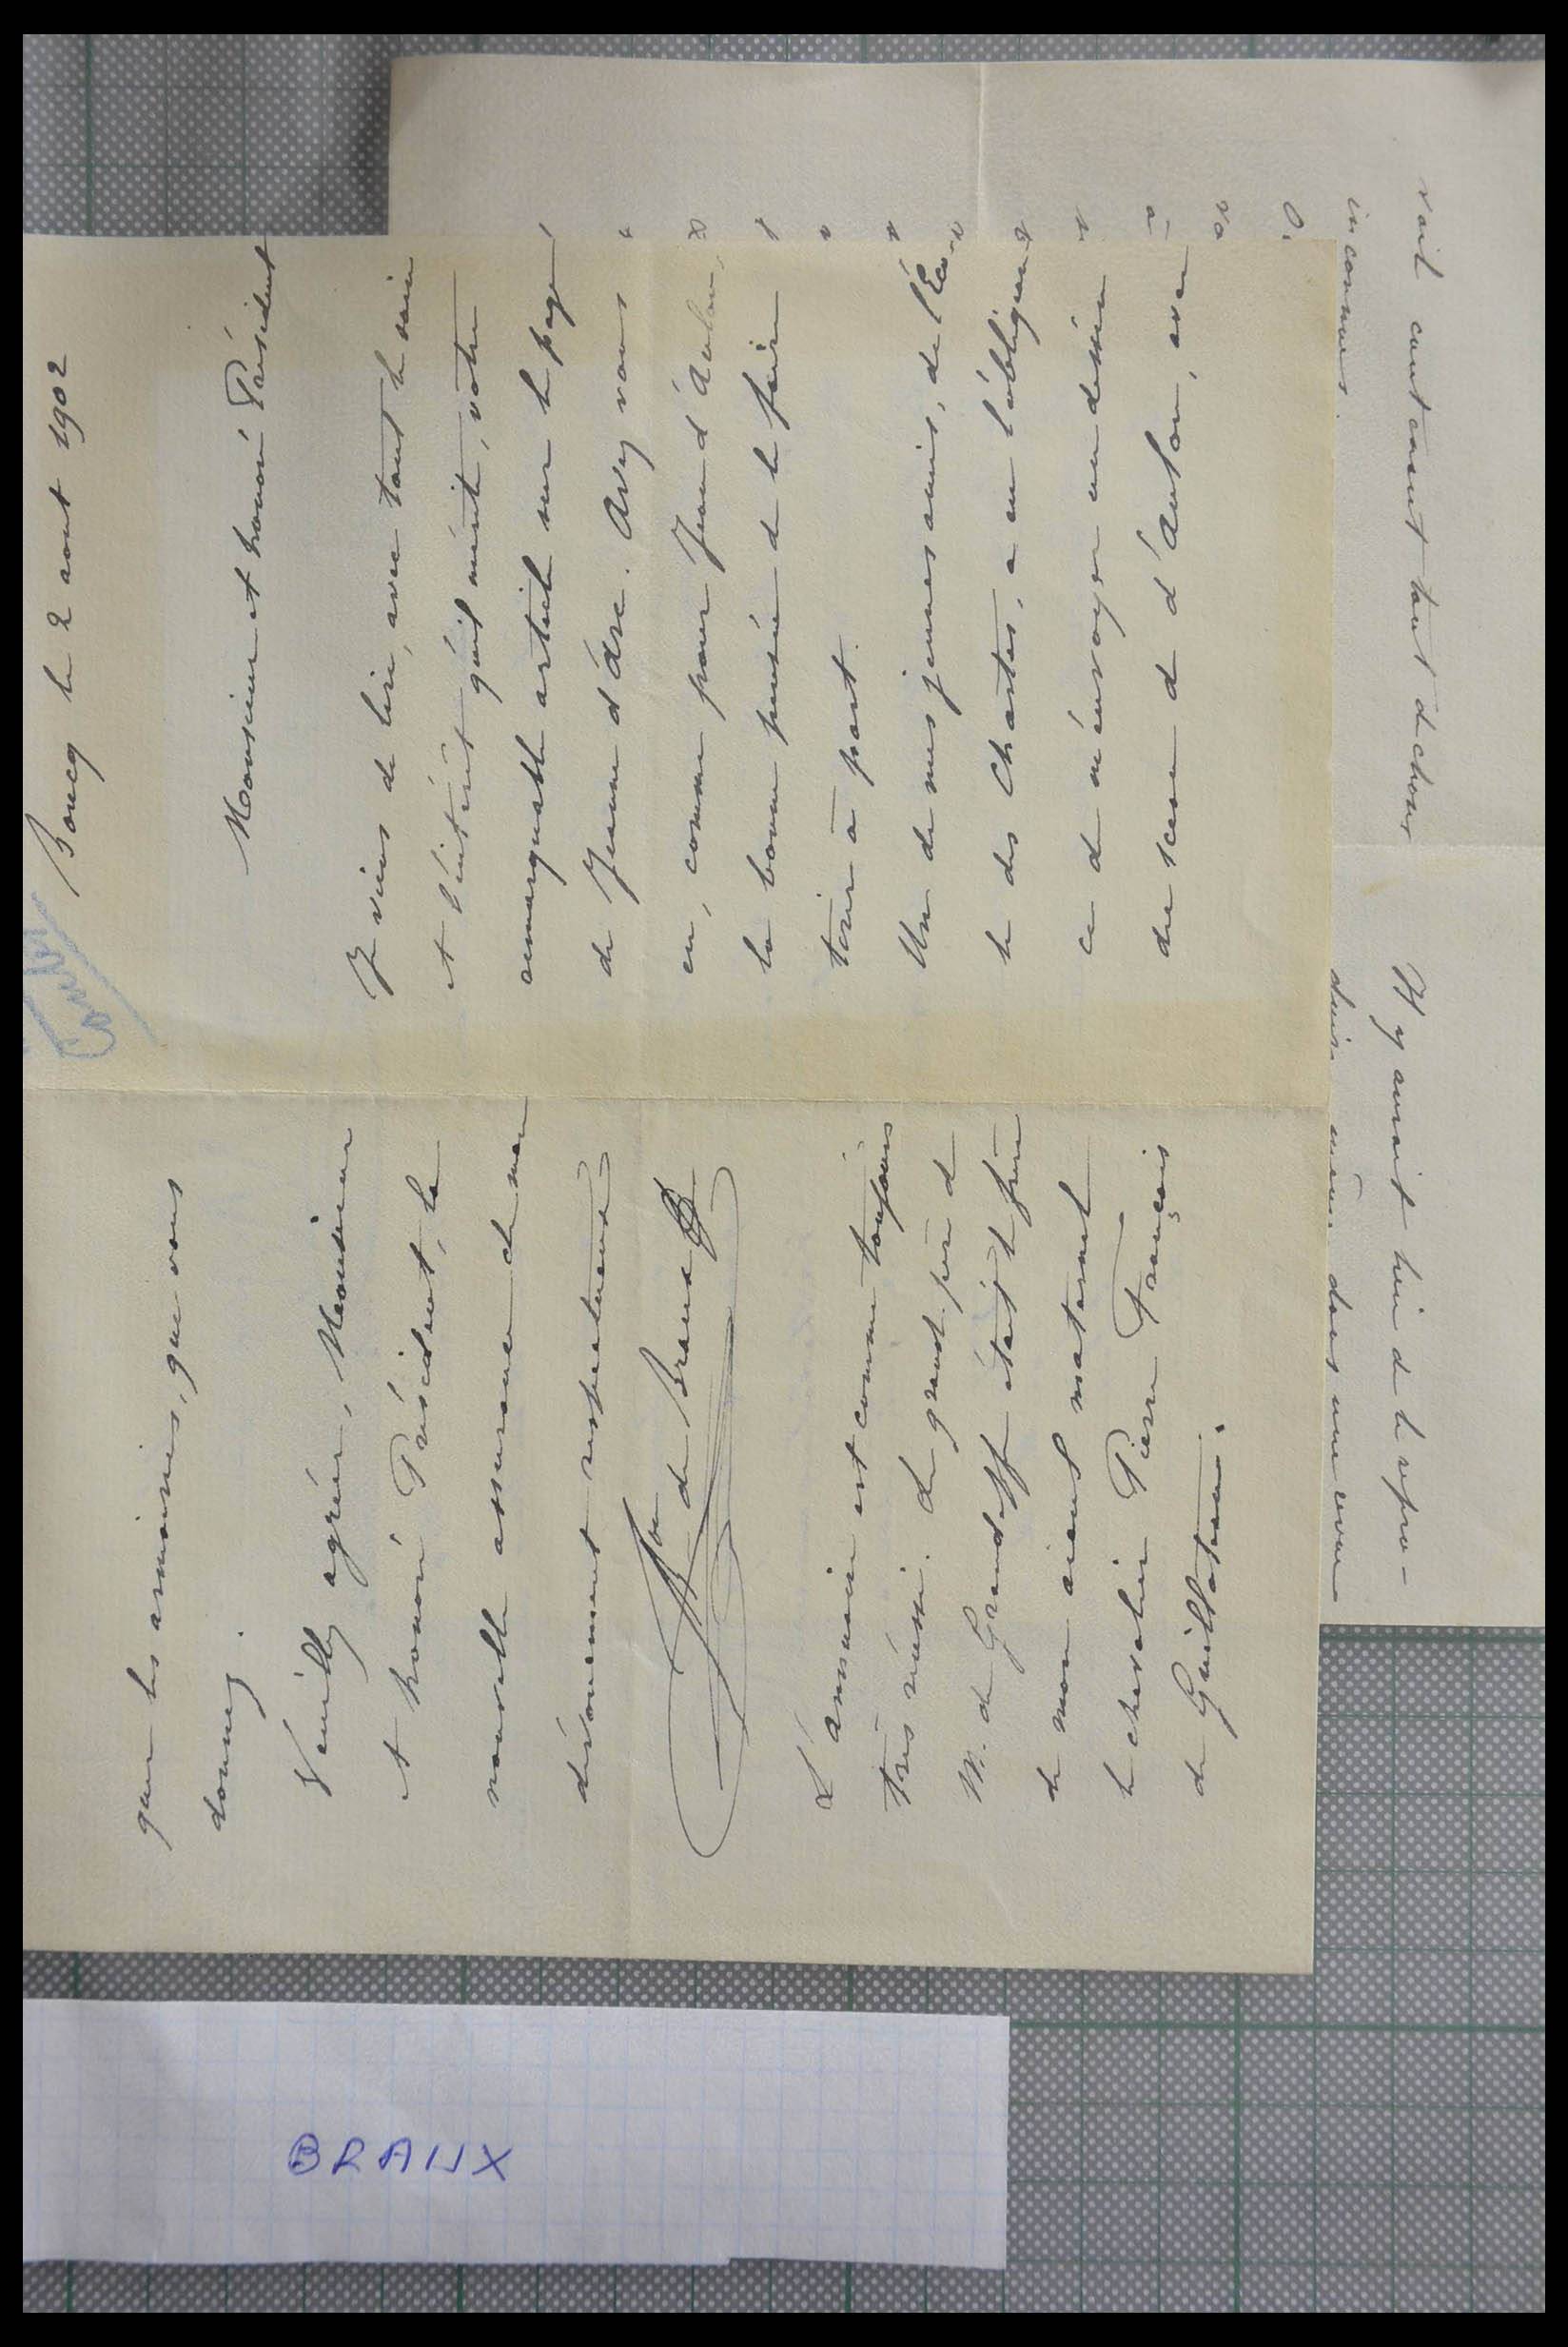 Boucq le 2 aout 1902
Monsieur et honoré Président
Je viens de lire, avec tout le soin
et l'intérêt qu'il mérite, votre
remarquable article sur le page
de Jeanne d'Arc. Avez vous
eu, comme pour Jean d'Aulon,
la bonne pensée de le faire
tirer à part.
Un de mes jeunes amis, de l'Eco-
le des Chartes, a eu l'obligean
ce de m'envoyer un dessin
du sceau de d'Aulon, avec
que les armoiries, que vous
donnez.
Veuillez agréer, Monsieur
et honoré Président, la
nouvelle assurance de mon
dévouement respectueux
Bon de Braux
L'annuaire est comme toujours
très réussi. Le grand père de
M. de Grandeff était le frère
de mon aieul maternel
le chevalier Pierre François
de Guilloteau.
vait cent cinquante tout de choses
inconnues.
Il y aurait lieu de le repro-
duire même dans une revue
BRAUX